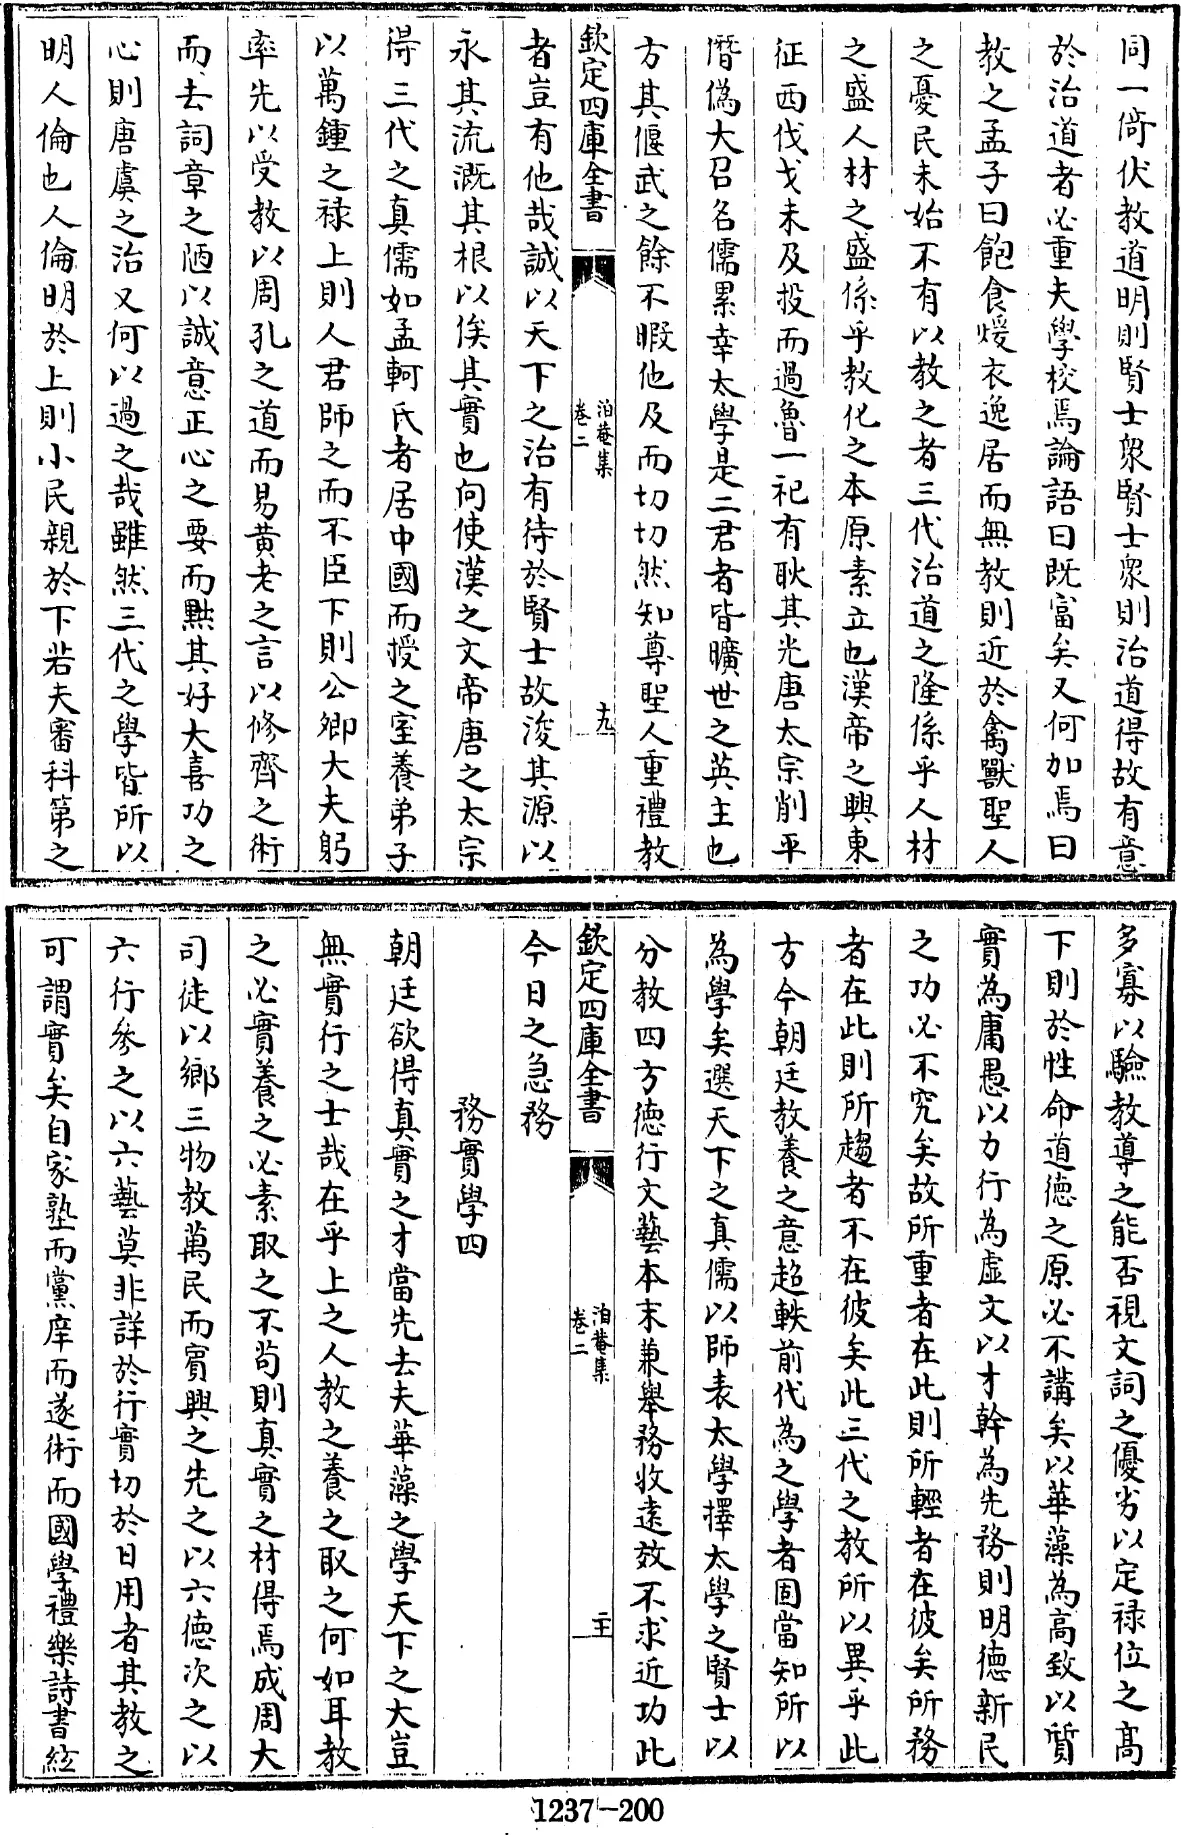 同一倚伏教道明則賢士衆賢士衆則治道得故有意
於治道者必重夫學校焉論語曰既富矣又何加焉曰
教之孟子曰飽食煖衣逸居而無教則近於禽獸聖人
之憂民未始不有以教之者三代治道之隆係乎人材
之盛人材之盛係乎教化之本原素立也漢帝之興東
征西伐戈未及投而過魯一祀有耿其光唐太宗削平
僭偽大召名儒累幸太學是二君者皆曠世之英主也
方其偃武之餘不暇他及而切切然知尊聖人重禮教
欽定四庫全書
泊菴集
卷二
十九
者豈有他哉誠以天下之治有待於賢士故浚其源以
永其流溉其根以俟其實也向使漢之文帝唐之太宗
得三代之真儒如孟軻氏者居中國而授之室養弟子
以萬鍾之禄上則人君師之而不臣下則公卿大夫躬
率先以受教以周孔之道而易黄老之言以修齊之術
而去詞章之陋以誠意正心之要而黜其好大喜功之
心則唐虞之治又何以過之哉雖然三代之學皆所以
明人倫也人倫明於上則小民親於下若夫審科第之
多寡以驗教導之能否視文詞之優劣以定禄位之髙
下則於性命道徳之原必不講矣以華藻為高致以質
實為庸愚以力行為虚文以才幹為先務則明徳新民
之功必不究矣故所重者在此則所輕者在彼矣所務
者在此則所趨者不在彼矣此三代之教所以異乎此
方今朝廷教養之意超軼前代為之學者固當知所以
為學矣選天下之真儒以師表太學擇太學之賢士以
分教四方徳行文藝本末兼舉務收逺效不求近功此
欽定四庫全書
泊菴集
卷二
二十
今日之急務
務實學四
朝廷欲得真實之才當先去夫華藻之學天下之大豈
無實行之士哉在乎上之人教之養之取之何如耳教
之必實養之必素取之不茍則真實之材得焉成周大
司徒以鄉三物教萬民而賓興之先之以六徳次之以
六行參之以六藝莫非詳於行實切於日用者其教之
可謂實矣自家塾而黨庠而遂術而國學禮樂詩書絃
1237-200